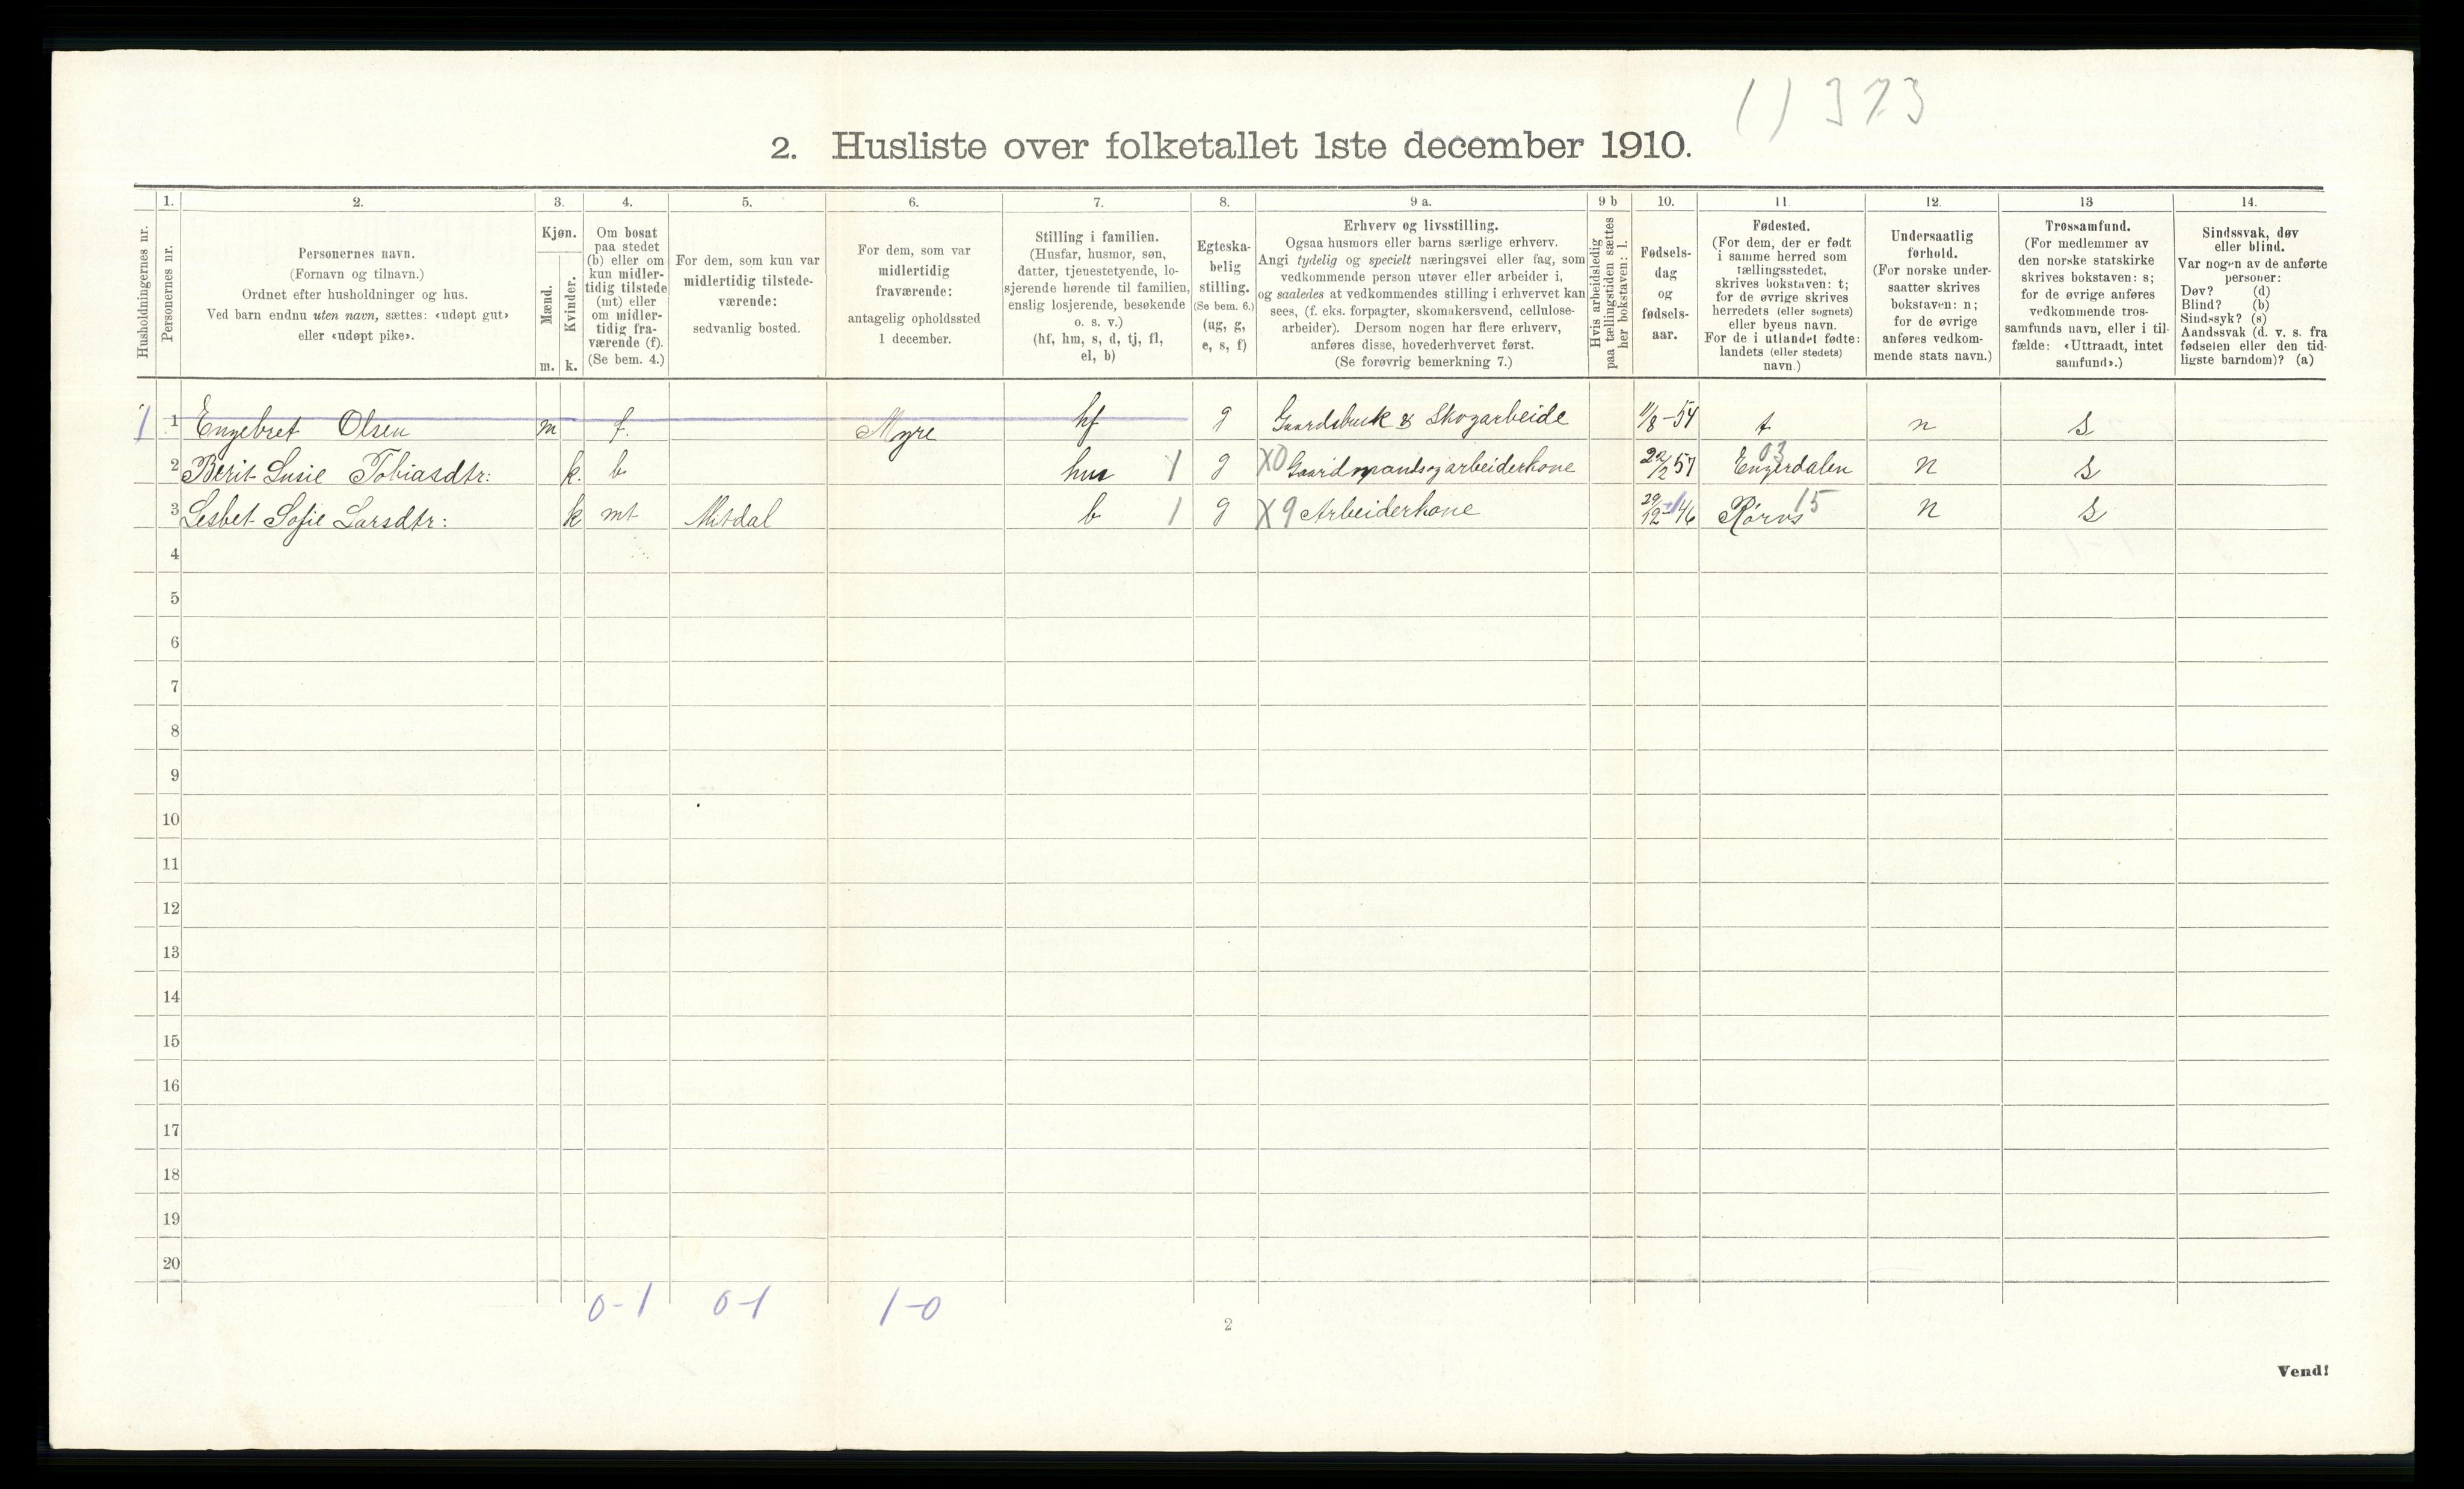 1) 373
2. Husliste over folketallet 1ste december 1910.
1. 2. 3. 4. 5. 6. 7. 8. 9 a. 9 b 10. 11. 12. 13 14.
Husholdningernes nr.
Personernes nr.
Personernes navn.
(Fornavn og tilnavn.)
Ordnet efter husholdninger og hus.
Ved barn endnu uten navn, sættes: «udøpt gut»
eller «udøpt pike».
Kjøn.
Mænd.
Kvinder.
m. k.
Om bosat
paa stedet
(b) eller om
kun midler-
tidig tilstede
(mt) eller
om midler-
tidig fra-
værende (f).
(Se bem. 4.)
For dem, som kun var
midlertidig tilstede-
værende:
sedvanlig bosted.
For dem, som var
midlertidig
fraværende:
antagelig opholdssted
1 december.
Stilling i familien.
(Husfar, husmor, søn,
datter, tjenestetyende, lo-
sjerende hørende til familien,
enslig losjerende, besøkende
o. s. v.)
(hf, hm, s, d, tj, fl,
el, b)
Egteska-
belig
stilling.
(Se bem. 6.)
(ug, g,
e, s, f)
Erhverv og livsstilling.
Ogsaa husmors eller barns særlige erhverv.
Angi tydelig og specielt næringsvei eller fag, som
vedkommende person utøver eller arbeider i,
og saaledes at vedkommendes stilling i erhvervet kan
sees, (f. eks. forpagter, skomakersvend, cellulose-
arbeider). Dersom nogen har flere erhverv,
anføres disse, hovederhvervet først.
(Se forøvrig bemerkning 7.)
Hvis arbeidsledig
paa tællingstiden sættes
her bokstaven: l.
Fødsels-
dag
og
fødsels-
aar.
Fødested.
(For dem, der er født
i samme herred som
tællingsstedet,
skrives bokstaven: t;
for de øvrige skrives
herredets (eller sognets)
eller byens navn.
For de i utlandet fødte:
landets (eller stedets)
navn.)
Undersaatlig
forhold.
(For norske under-
saatter skrives
bokstaven: n;
for de øvrige
anføres vedkom-
mende stats navn.)
Trossamfund.
(For medlemmer av
den norske statskirke
skrives bokstaven: s;
for de øvrige anføres
vedkommende tros-
samfunds navn, eller i til-
fælde: «Uttraadt, intet
samfund».)
Sindssvak, døv
eller blind.
Var nogen av de anførte
personer:
Døv? (d)
Blind? (b)
Sindssyk? (s)
Aandssvak (d. v. s. fra
fødselen eller den tid-
ligste barndom)? (a)
1 1 Engebret Olsen m f. Myre hf g Gaardsbruk & Skogarbeide 11/8-54 t n s
2 Berit Susie Tobiasdtr: k. b 1 g X0 Gaardmands og arbeiderkone 57 Engerdalen 03 n s
3 Lesbet Sofie Larsdtr: k mt Mitdal b 1 g X9 Arbeiderkone 46 Røros 15 n s
4
5
6
7
8
9
10
11
12
13
14
15
16
17
18
19
20
0-1 0-1 1-0
2
Vend!